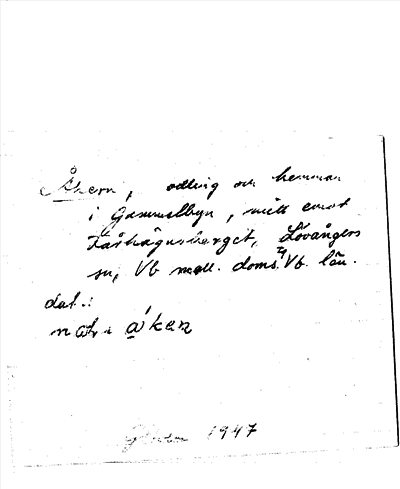 Åkern, odling och hemman
i Gammelbyn, mitt emot
Kåkhägnsberget, Lövångers
sn, Vb mell. doms. Vb. län.
dat.:
nåt i åken
1947